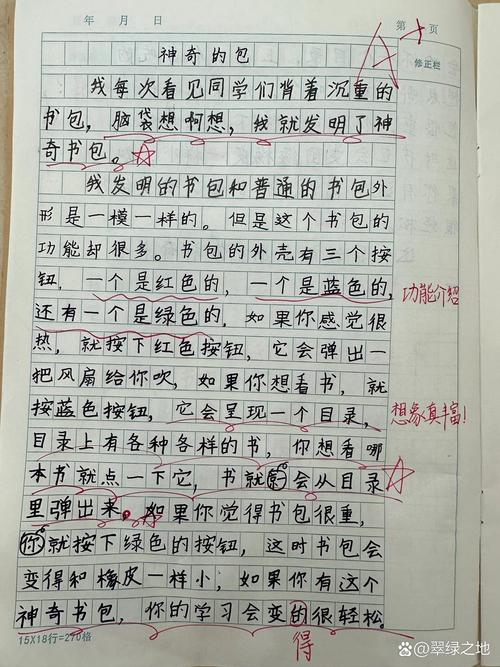 年 月 日
第 页
修正栏
神奇的包
我每次看见同学们背着沉重的
书包，脑袋想啊想，我就发明了神
奇书包。
我发明的书包和普通的书包外
形是一模一样的。但是这个书包的
功能却很多。书包的外壳有三个按
钮，一个是红色的，一个是蓝色的，
功能介绍
还有一个是绿色的。如果你感觉很
热，就按下红色按钮，它会弹出一
把风扇给你吹，如果你想看书，就
按蓝色按钮，它会呈现一个目录，
想象真丰富！
目录上有各种各样的书，你想看哪
本书就点一下它，书就会从目录
里弹出来。如果你觉得书包很重，
你就按下绿色的按钮，这时书包会
变得和橡皮一样小，如果你有这个
神奇书包，你的学习会变的很轻松。
得
15X18行=270格
翠绿之地